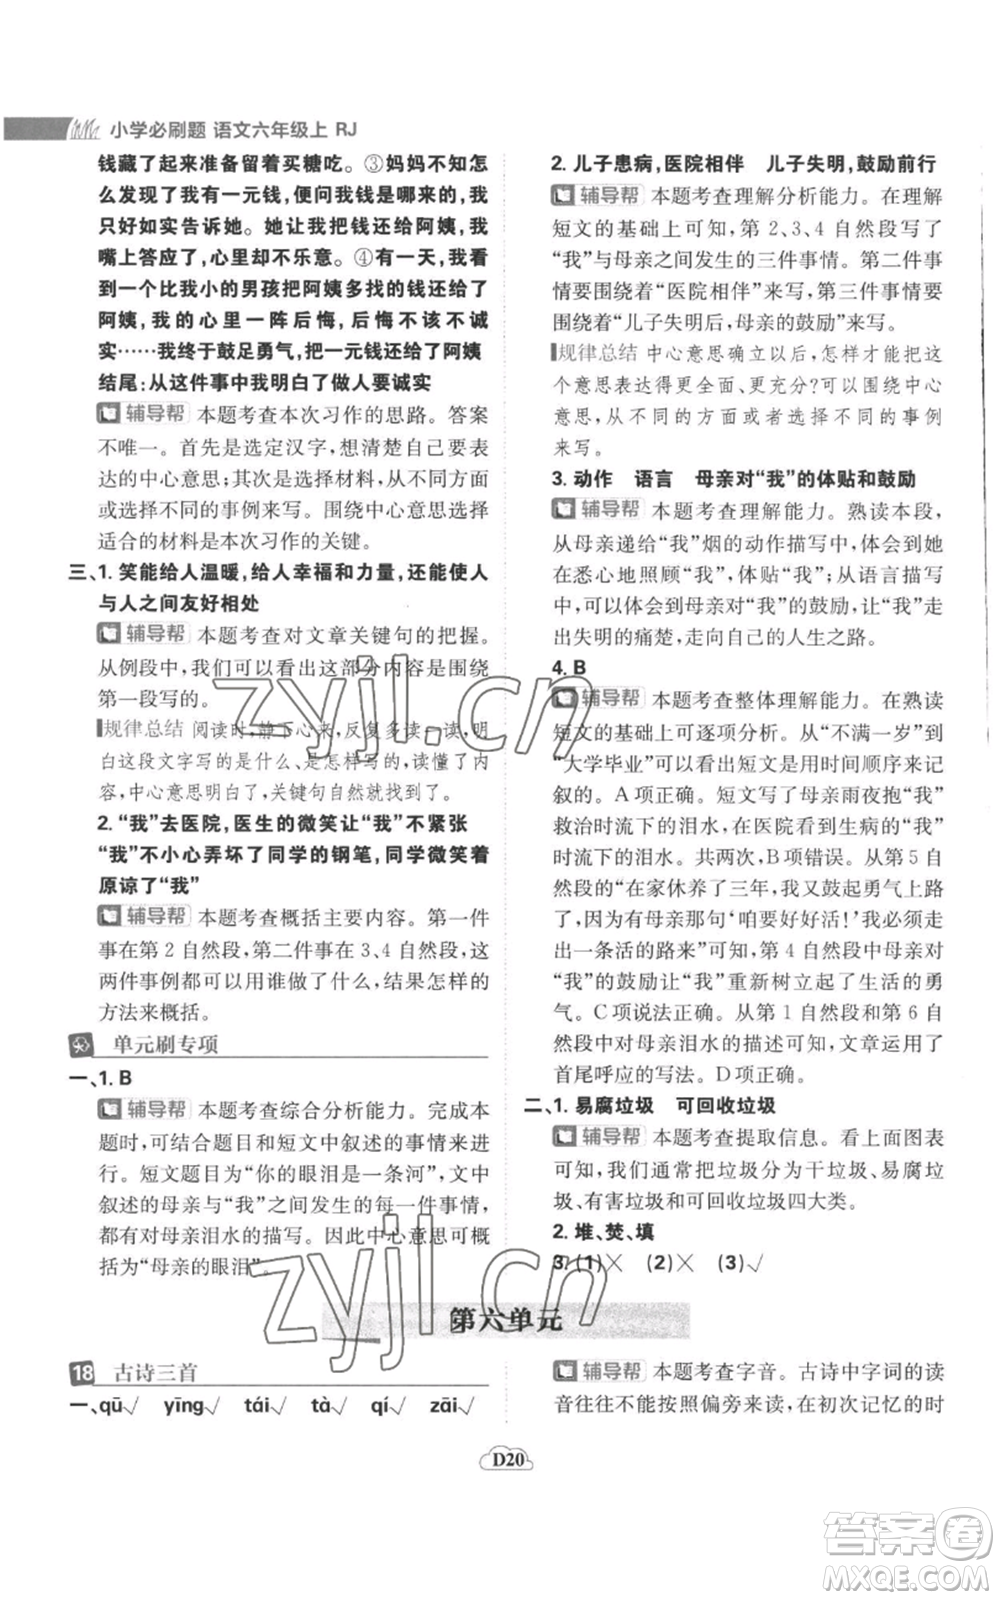 小学必刷题 语文六年级上 RJ
钱藏了起来准备留着买糖吃。③妈妈不知怎
么发现了我有一元钱，便问我钱的来历，我只
好如实告诉她。她让我把钱还给阿姨，我
嘴上答应了，心里却不乐意。④有一天，我看
到一个比我小的男孩把阿姨多找的钱还给了
阿姨，我的心里一阵后悔，后悔不该不诚
实……我终于鼓足勇气，把一元钱还给了阿姨
结尾：从这件事中我明白了做人要诚实
辅导帮 本题考查本次习作的思路。答案
不唯一。首先是选定汉字，想清楚自己要表
达的中心意思；其次是选择材料，从不同方面
或选择不同的事例来写。围绕中心意思选择
适合的材料是本次习作的关键。
三、1. 笑能给人温暖，给人幸福和力量，还能使人
与人之间友好相处
辅导帮 本题考查对文章关键句的把握。
从例段中，我们可以看出这部分内容是围绕
第一段写的。
规律总结 阅读时，静下心来，反复多读一读，明
白这段文字写的是什么、是怎样写的，读懂了内
容，中心意思明白了，关键句自然就找到了。
2. “我”去医院，医生的微笑让“我”不紧张
“我”不小心弄坏了同学的钢笔，同学微笑着
原谅了“我”
辅导帮 本题考查概括主要内容。第一件
事在第 2 自然段，第二件事在 3、4 自然段，这
两件事例都可以用谁做了什么，结果怎样的
方法来概括。
单元刷专项
一、1. B
辅导帮 本题考查综合分析能力。完成本
题时，可结合题目和短文中叙述的事情来进
行。短文题目为“你的眼泪是一条河”，文中
叙述的母亲与“我”之间发生的每一件事情，
都有对母亲泪水的描写。因此中心意思可概
括为“母亲的眼泪”。
2. 儿子患病，医院相伴 儿子失明，鼓励前行
辅导帮 本题考查理解分析能力。在理解
短文的基础上可知，第 2、3、4 自然段写了
“我”与母亲之间发生的三件事情。第二件事
情要围绕着“医院相伴”来写，第三件事情要
围绕着“儿子失明后，母亲的鼓励”来写。
规律总结 中心意思确立以后，怎样才能把这
个意思表达得更全面、更充分？可以围绕中心
意思，从不同的方面或者选择不同的事例
来写。
3. 动作 语言 母亲对“我”的体贴和鼓励
辅导帮 本题考查理解能力。熟读本段，
从母亲递给“我”烟的动作描写中，体会到她
在悉心地照顾“我”，体贴“我”；从语言描写
中，感受到母亲对“我”的鼓励，让“我”走
出失明的痛楚，走向自己的人生之路。
4. B
辅导帮 本题考查整体理解能力。在熟读
短文的基础上，可逐项分析。从“不满一岁”到
“大学毕业”可以看出短文是用时间顺序来记
叙的。A 项正确。短文写了母亲雨夜抱“我”
救治时流下的泪水，在医院看到生病的“我”
时流下的泪水。共两次，B 项错误。从第 5 自
然段的“在家休养了三年，我又鼓起勇气上路
了，因为有母亲那句‘咱要好好活！’我必须走
出一条活的路来”可知，第 4 自然段中母亲对
“我”的鼓励让“我”重新树立起了生活的勇
气。C 项说法正确。从第 1 自然段和第 6 自
然段中对母亲泪水的描述可知，文章运用了
首尾呼应的写法。D 项正确。
二、1. 易腐垃圾 可回收垃圾
辅导帮 本题考查提取信息。看上面图表
可知，我们通常把垃圾分为干垃圾、易腐垃
圾、有害垃圾和可回收垃圾四大类。
2. 堆、焚、填
3. (1)× (2)× (3)√
第六单元
18 古诗三首
一、qū√ yīng√ tái√ tà√ qí√ zāi√
辅导帮 本题考查字音。古诗中字词的读
音往往不能按照偏旁来读，在初次记忆的时
D20
zyjl.cn
zyjl.cn
答案卷
MXQE.COM